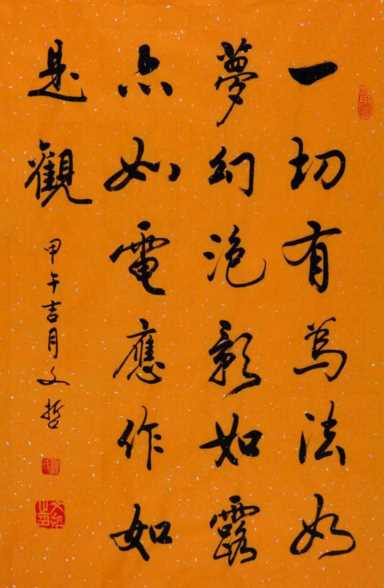 一切有為法如
夢幻泡影如露
亦如電應作如
是觀
甲午吉月文哲